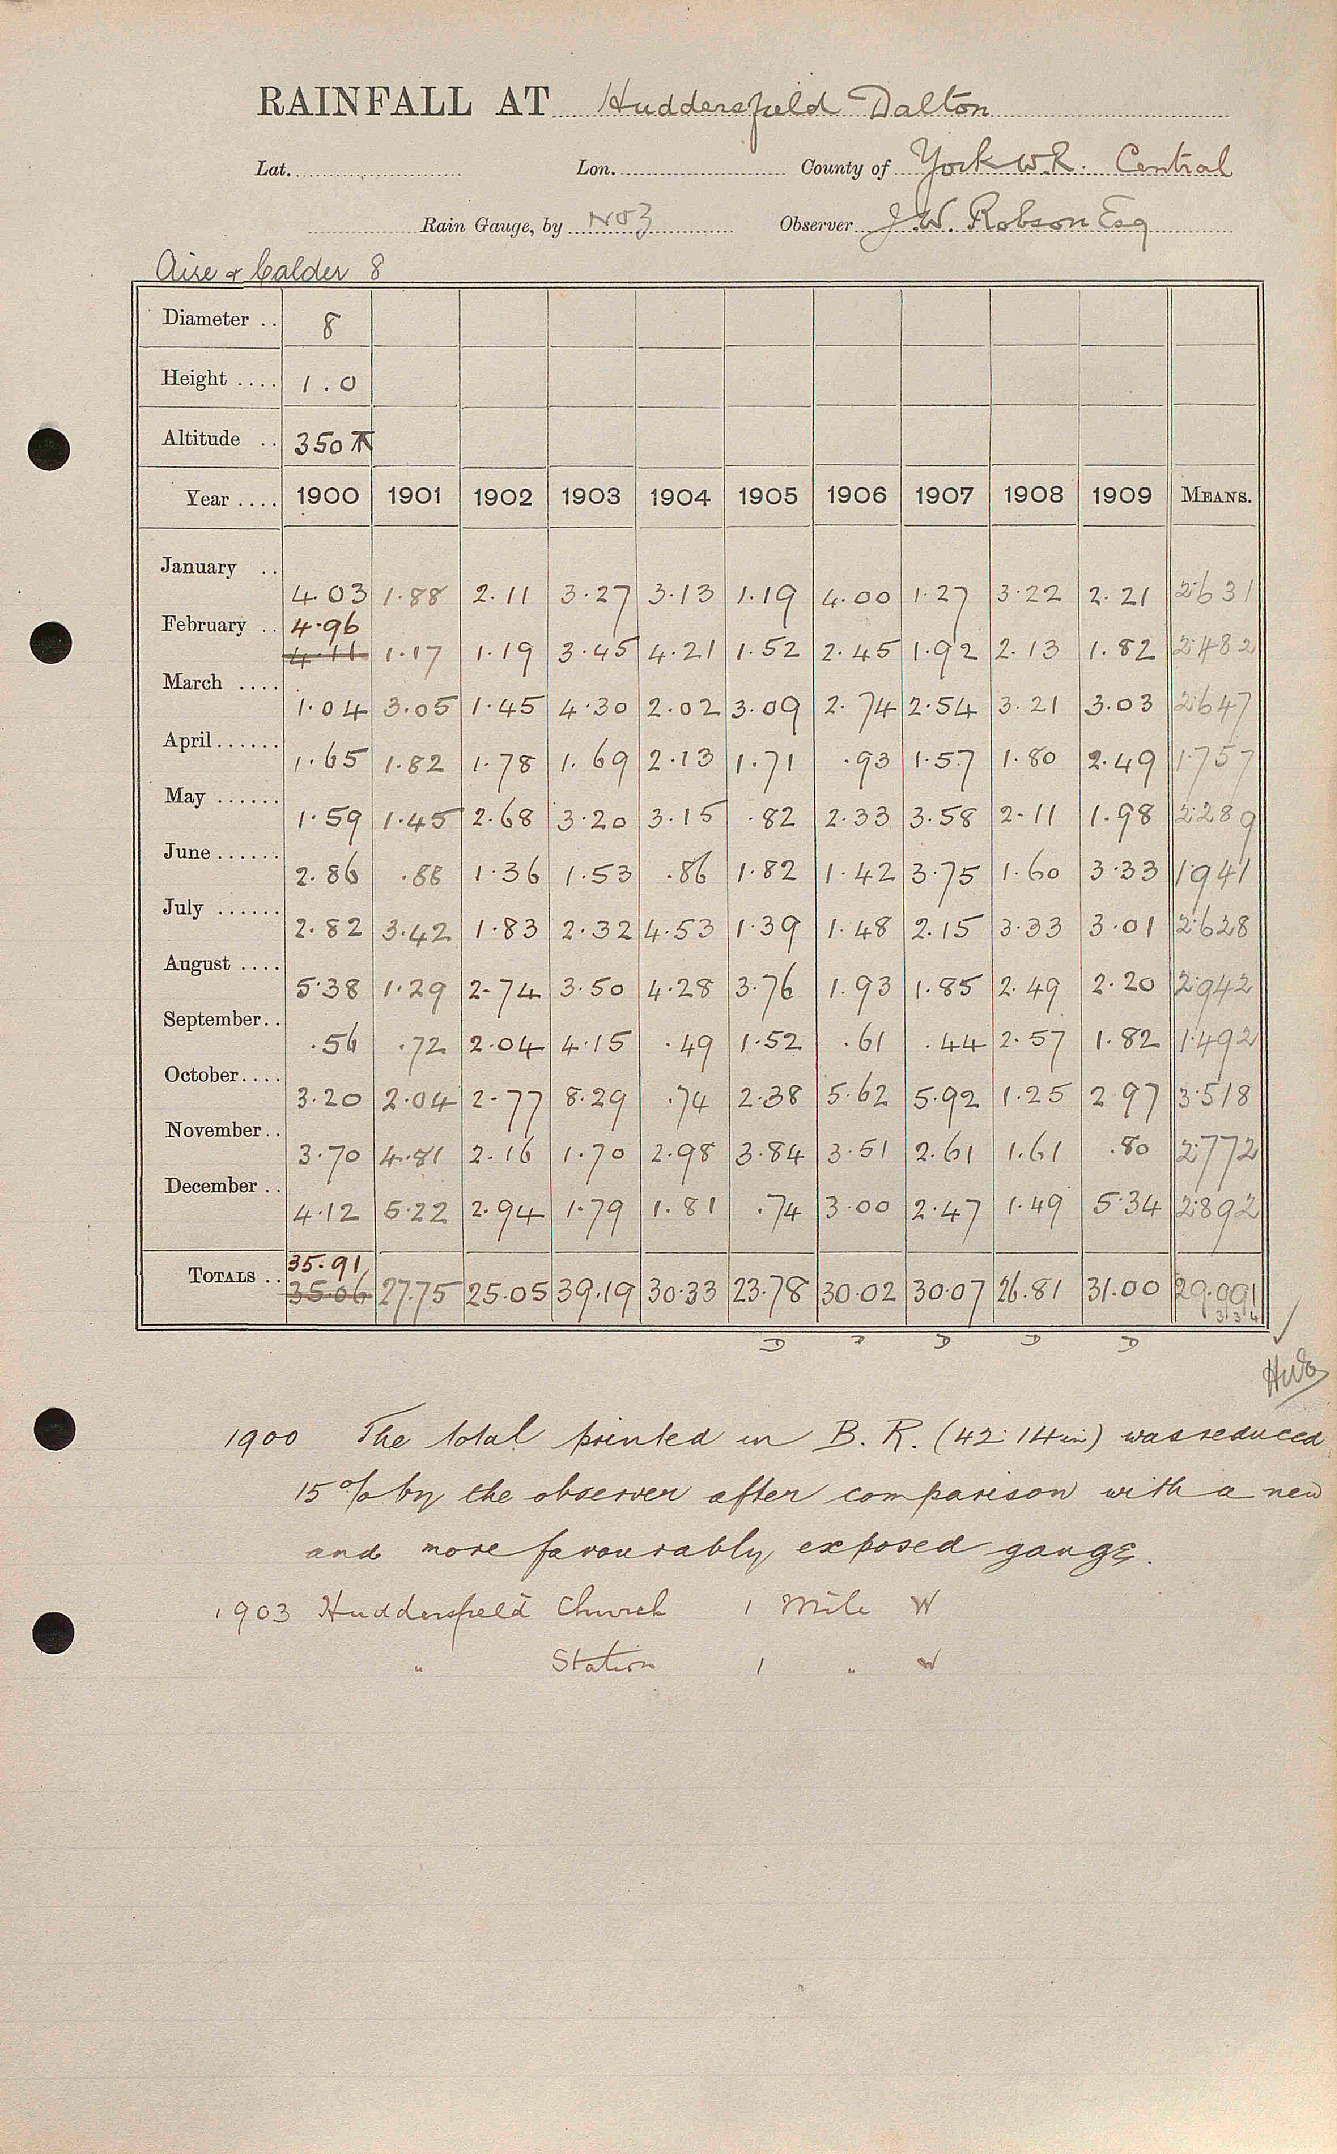 RAINFALL AT Huddersfield Dalton
Lat. Lon. County of York W.R. Central
Rain Gauge, by No 3 Observer J.W. Robson Esq
Aire & Calder 8
Diameter .. 8
Height .... 1.0
Altitude .. 350
Year .... 1900 1901 1902 1903 1904 1905 1906 1907 1908 1909 MEANS.
January .. 4.03 1.88 2.11 3.27 3.13 1.19 4.00 1.27 3.22 2.21 2.631
February .. 4.96
4.11 1.17 1.19 3.45 4.21 1.52 2.45 1.92 2.13 1.82 2.482
March .... 1.04 3.05 1.45 4.30 2.02 3.09 2.74 2.54 3.21 3.03 2.647
April...... 1.65 1.82 1.78 1.69 2.13 1.71 .93 1.57 1.80 2.49 1.757
May ...... 1.59 1.45 2.68 3.20 3.15 .82 2.33 3.58 2.11 1.98 2.289
June...... 2.86 .88 1.36 1.53 .86 1.82 1.42 3.75 1.60 3.33 1.941
July ...... 2.82 3.42 1.83 2.32 4.53 1.39 1.48 2.15 3.33 3.01 2.628
August .... 5.38 1.29 2.74 3.50 4.28 3.76 1.93 1.85 2.49 2.20 2.942
September.. .56 .72 2.04 4.15 .49 1.52 .61 .44 2.57 1.82 1.492
October.... 3.20 2.04 2.77 8.29 .74 2.38 5.62 5.92 1.25 2.97 3.518
November.. 3.70 4.81 2.16 1.70 2.98 3.84 3.51 2.61 1.61 .80 2.772
December .. 4.12 5.22 2.94 1.79 1.81 .74 3.00 2.47 1.49 5.34 2.892
35.91
TOTALS .. 35.06 27.75 25.05 39.19 30.33 23.78 30.02 30.07 26.81 31.00 29.091
D D D D
1900 The total printed in B. R. (42.14in) was reduced
15% by the observer after comparison with a new
and more favourably exposed gauge.
1903 Huddersfield Church 1 Mile W
" Station 1 " W